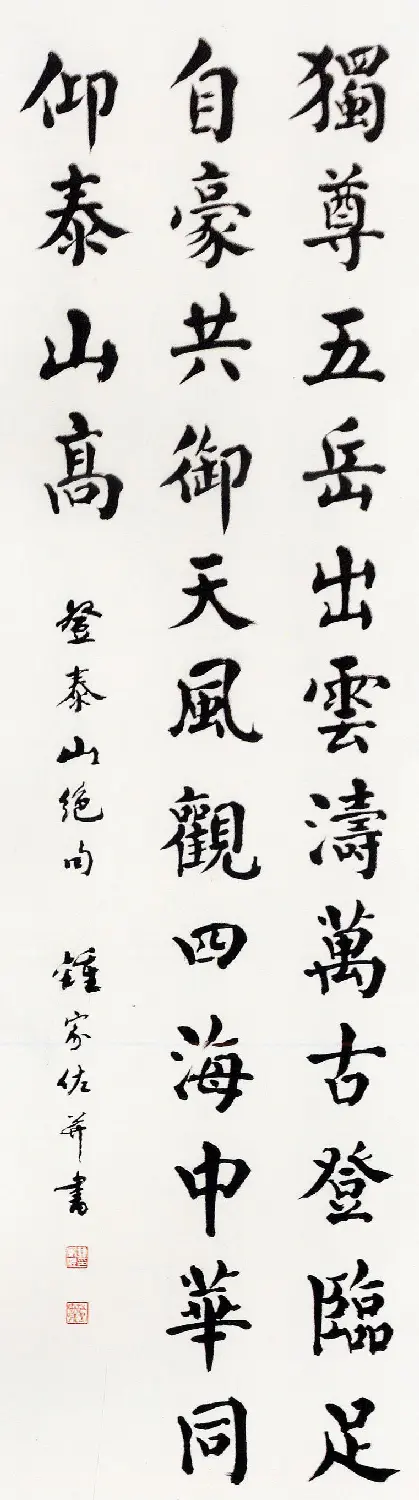 獨尊五岳出雲濤萬古登臨足
自豪共御天風觀四海中華同
仰泰山高
登泰山绝句 鍾家佐并書